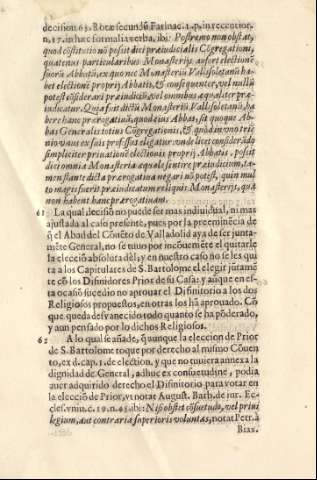 decision 63. Rotæ secundũ Farinac. 2. p. in reccntior.
n. 17. in hæc formalia verba, ibi: Postremo non obstat,
quod cõstitutio nõ possit dici præiudicialis Cõgregationi,
quatenus particularibus Monasterijs aufert electionẽ
suorũ Abbatũ, ex quo nec Monasteriũ Vallisoletanũ ha-
bet electionẽ proprij Abatis, & consequenter, vel nullũ
potest cõsiderari præiudiciũ, vel omnibus æqualiter præ-
iudicatur. Quia fat dictũ Monasteriũ Vallisoletanũ, ha
bere hanc prærogatiuã, quod eius Abbas, sit quoque Ab-
bas Generalis totius Cõgregationis, & quod in vno tri
nio vnus ex suis professus eligatur vnde licet considerãdo
simpliciter priuationẽ electionis proprij Abbatis, possit
dici omnia Monasteria æqualẽ sentire præiudicium, ta-
men stante dicta prærogatiua negari nõ potest, quin mul
to magis fuerit præiudicatum reliquis Monasterijs, quæ
non habent hanc prærogatiuam.
61 La qual decisiõ no puede ser mas indiuidual, ni mas
ajustada al caso presente, pues por la preeminẽcia de
q̃ el Abad del Cõuẽto de Valladolid aya de ser junta-
mẽte General, no se tuuo por incõuemẽte el quitarle
la elecciõ absoluta dèl; y en nuestro caso no se les qui
ta a los Capitulares de S. Bartolome el elegir jũtamẽ
te cõ los Difinidores Prior de su Casa: y aũque en es-
ta ocasiõ sucedio no aprouar el Difinitorio a los dos
Religiosos propuestos, en otras los hã aprouado. Cõ
que queda desvanecido todo quanto se ha põderado,
y aun pensado por lo dichos Religiosos.
62 A lo qual se añade, q̃ aunque la eleccion de Prior
de S. Bartolome toque por derecho al mismo Cõuen
to, ex d. cap. 1. de election. y que no tuuiera annexa la
dignidad de General, adhuc ex consuetudine, podia
auer adquirido derecho el Difinitorio para votar en
la elecciõ de Prior, vt notat August. Barb. de iur. Ec-
cles. vniu. c. 19. n. 45. ibi: Nisi obstet cõsuetudo, vel priui
legium, aut contraria superioris voluntas, notat Petr. à
Bias.